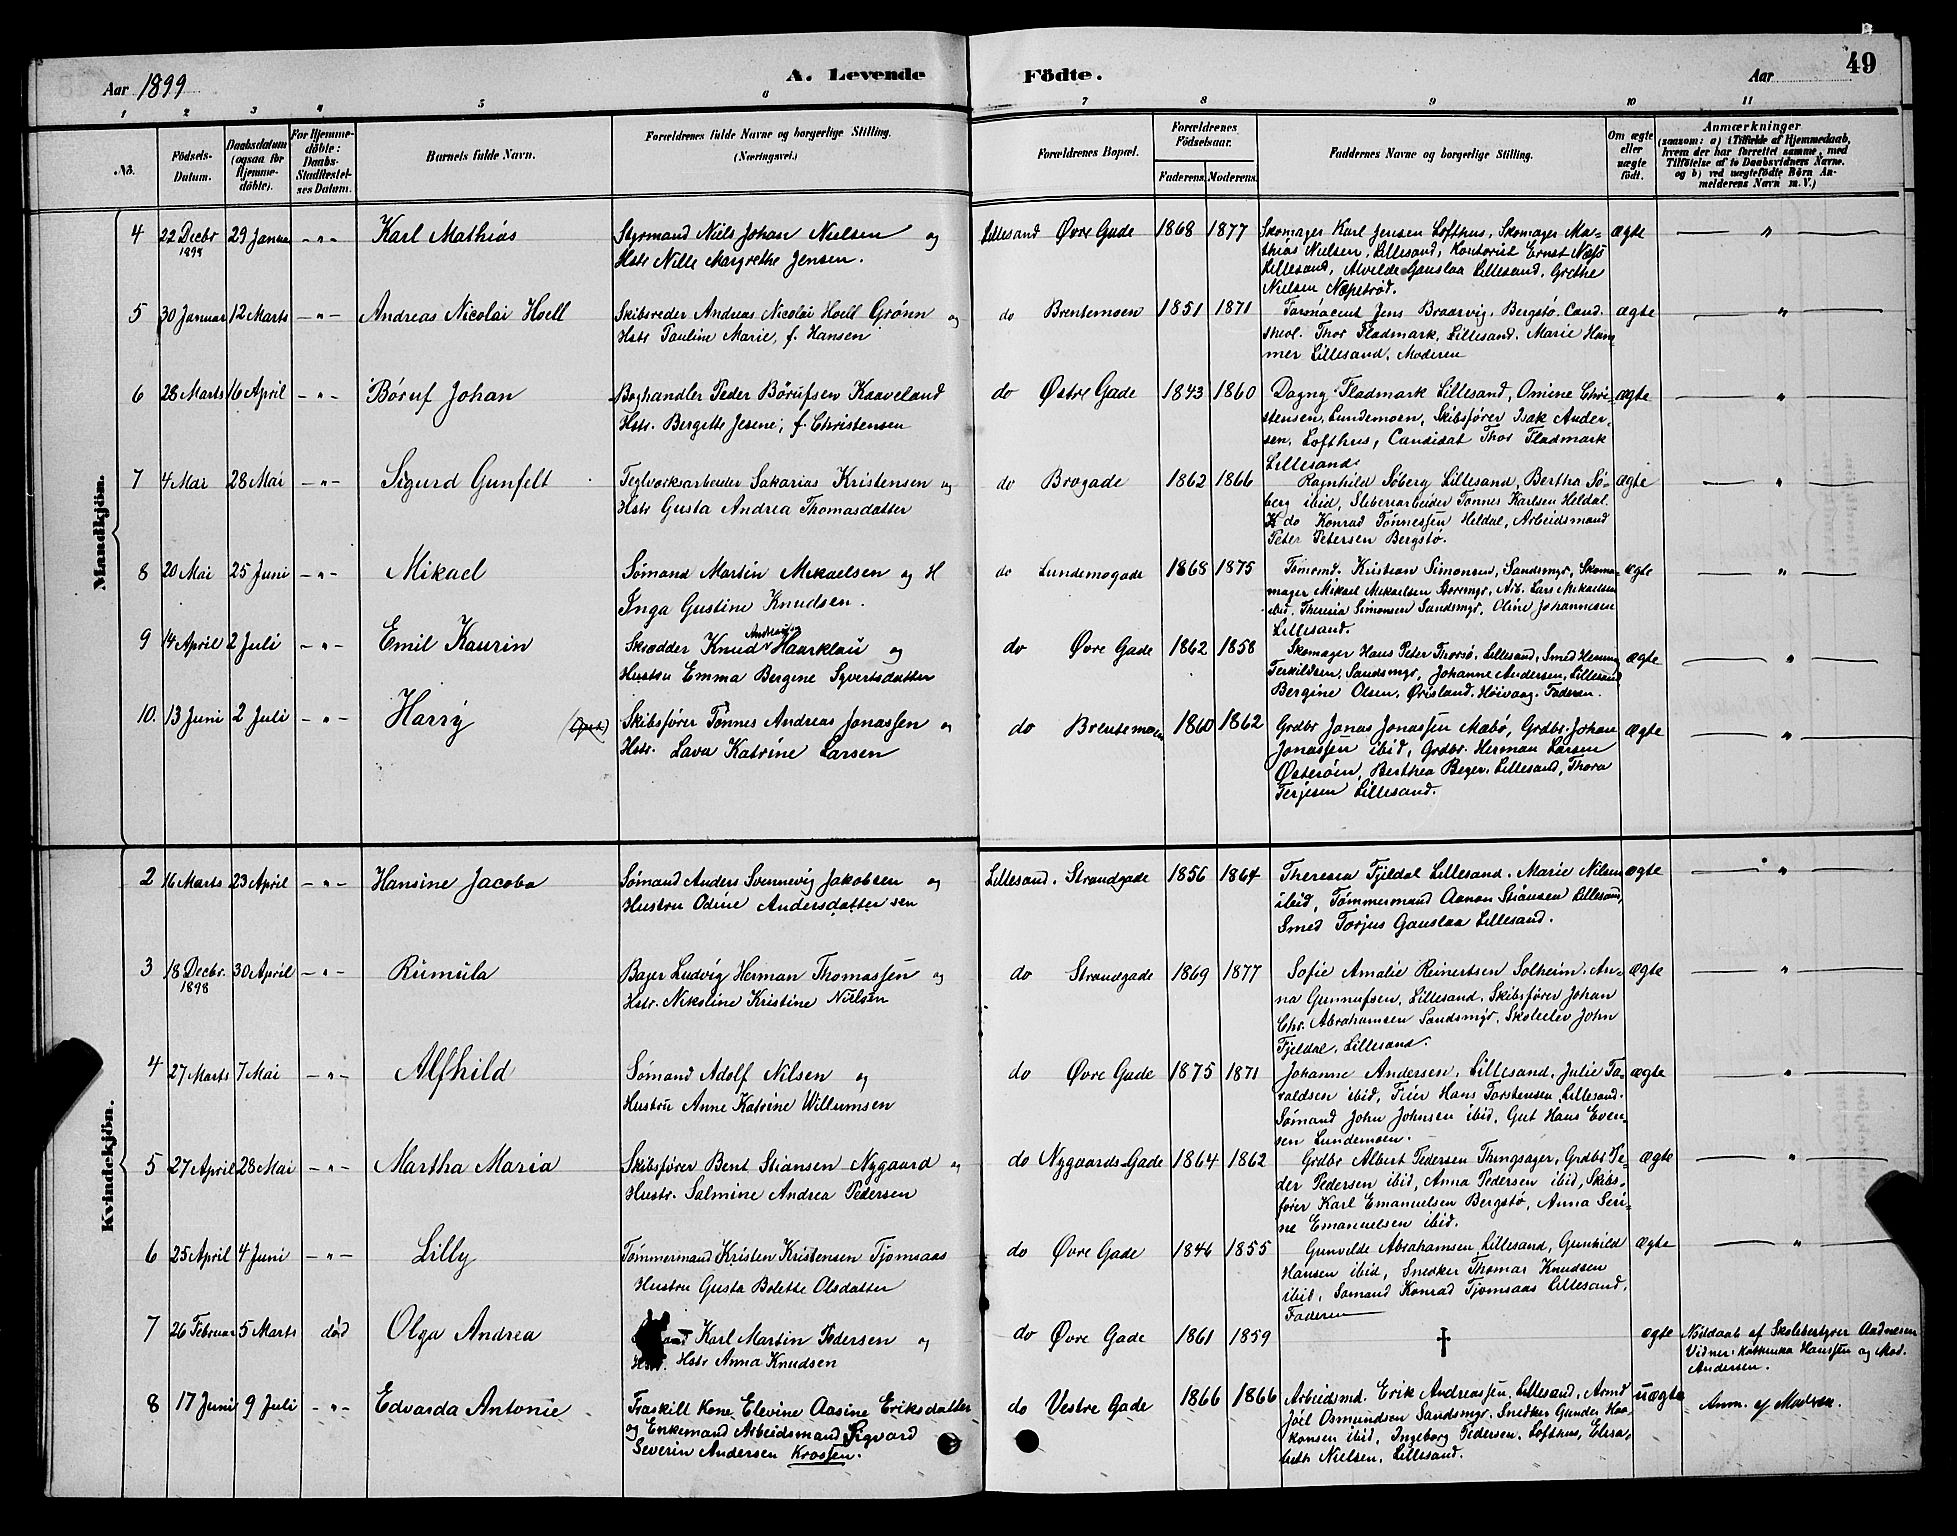 Aar 1899
A. Levende Födte.
Aar
49
1 2 3 4 5 6 7 8 9 10 11
No.
Födsels-Datum.
Daabsdatum (ogsaa for Hjemmedöbte).
For Hjemmedöbte: Daabs-Stadfæstelses Datum.
Barnets fulde Navn.
Forældrenes fulde Navne og borgerlige Stilling. (Næringsvei.)
Forældrenes Bopæl.
Forældrenes Födselsaar.
Faderens. Moderens.
Faddernes Navne og borgerlige Stilling.
Om ægte eller uægte født.
Anmærkninger
(saasom: a) i Tilfælde af Hjemmedaab,
hvem der har forrettet samme, med
Tilföielse af to Daabsvidners Navne.
og b) ved uægtefödte Børn An-
melderens Navn m. V.)
Mandkjön.
4 22 Decbr 1898 29 Januar -"- Karl Mathias
Styrmand Niels Johan Nielsen og
Hstr Nille Margrethe Jensen.
Lillesand Øvre Gade 1868 1877
Skomager Karl Jensen Lofthus, Skomager Ma-
thias Nielsen, Lillesand, Kontorist Ernst Næss
Lillesand, Alvilde Gauslaa Lillesand, Grethe
Nielsen Næpetrød.
ægte "
5 30 Januar 12 Marts -"- Andreas Nicolai Hoell
Skibsreder Andreas Nicolai Hoell Grønn og
Hstr Pauline Marie, f. Hansen
do Brentemoen 1851 1871
Farmaceut Jens Braarvig, Bergstø, Cand.
theol. Thor Fladmark, Lillesand, Marie Ham-
mer Lillesand, Moderen
ægte "
6 28 Marts 16 April -"- Böruf Johan
Boghandler Peder Börufsen Kaaveland
Hstr. Bergitte Jesine, f. Christensen
do Østre Gade 1843 1860
Dagny Fladmark Lillesand, Omine Chri-
stensen, Lundemoen, Skibsfører Isak Ander-
sen, Lofthus, Candidat Thor Fladmark
Lillesand.
ægte "
7 4 Mai 28 Mai -"- Sigurd Gunfelt
Teglværksarbeider Sakarias Kristensen og
Hstr Gusta Andrea Thomasdatter
do Brogade 1862 1866
Ragnhild Søberg Lillesand, Bertha Sø-
berg ibid, Sliberiarbeider Tønnes Karlsen Heldal
do Konrad Tønnessen Heldal, Arbeidsmand
Peter Petersen Bergstø.
ægte "
8 20 Mai 25 Juni -"- Mikael
Sømand Martin Mikaelsen og H
Inga Gustine Knudsen.
do Lundemogade 1868 1875
Tømrmd. Kristian Simonsen, Sandsmyr, Skoma-
mager Mikael Mikaelsen Storemyr, Arb. Lars Mikaelsen
ibid. Theresia Simonsen Sandsmyr, Oline Johannesen
Lillesand.
ægte "
9 14 April 2 Juli -"- Emil Kaurin
Skrædder Knud Andreas Haarklau og
Hustru Emma Bergine Syvertsdatter
do Øvre Gade 1862 1858
Skomager Hans Peter Thorsø, Lillesand, Smed Herman
Terkildsen, Sandsmyr, Johanne Andersen, Lillesand
Bergine Olsen, Ørisland, Høivaag. Faderen.
ægte "
10. 13 Juni 2 Juli -"- Harry
Skibsfører Tønnes Andreas Jonassen og
Hstr. Lava Katrine Larsen
do Brentemoen 1860 1862
Grdbr Jonas Jonassen Mæbø, Grdbr. Johan
Jonassen ibid, Grdbr. Herman Larsen
Østerøen, Berthea Beger, Lillesand, Thora
Terjesen Lillesand.
ægte "
Kvindekjön.
2 16 Marts 23 April -"- Hansine Jacoba
Sømand Anders Svennevig Jakobsen og
Hustru Odine Andersdatter sen
Lillesand. Strandgade 1856 1864
Theresia Fjeldal Lillesand. Marie Nilsen
ibid, Tømmermand Aanon Stiansen Lillesand,
Smed Torjus Gauslaa Lillesand.
ægte "
3 18 Decbr. 1898 30 April -"- Rumula
Bager Ludvig Herman Thomassen og
Hstr. Nikoline Kristine Nielsen
do Strandgade 1869 1877
Sofie Amalie Reinertsen Solheim. An-
na Gunnufsen, Lillesand, Skibsfører Johan
Chr. Abrahamsen Sandsmyr, Skoleelev John
Fjeldal, Lillesand.
ægte "
4 27 Marts 7 Mai -"- Alfhild
Sømand Adolf Nilsen og
Hustru Anne Katrine Willumsen
do Øvre Gade 1875 1871
Johanne Andersen, Lillesand, Julie Ta-
raldsen ibid, Feier Hans Torstensen, Lillesand.
Sømand John Johnsen ibid, Gut Hans Even-
sen Lundemoen.
ægte "
5 27 April 28 Mai -"- Martha Maria
Skibsfører Bent Stiansen Nygaard og
Hustr. Salmine Andrea Pedersen
do Nygaards Gade 1864 1862
Grdbr Albert Pedersen Thingsager, Grdbr Pe-
der Pedersen ibid, Anna Pedersen ibid, Skibs-
fører Karl Emanuelsen Bergstø, Anna Seri-
ne Emanuelsen ibid.
ægte "
6 25 April 4 Juni -"- Lilly
Tømmermand Kristen Kristensen Tjomsaas
Hustru Gusta Bolette Olsdatter
do Øvre Gade 1846 1855
Gunvelde Abrahamsen, Lillesand, Gunhild
Hansen ibid, Snedker Thomas Knudsen
ibid, Sømand Konrad Tjomsaas Lillesand,
Faderen
ægte "
7 26 Februar 5 Marts død Olga Andrea
Karl Martin Pedersen og
Hstr Anna Knudsen
do Øvre Gade 1861 1859
†
ægte
Nöddaab af Skolebestyrer Aadnesen
Vidner: Kathinka Hanssen og Mad.
Andersen.
8 17 Juni 9 Juli -"- Edvarda Antonie
Fraskilt Kone Elevine Aasine Eriksdatter
og Enkemand Arbeidsmand Sigvard
Severin Andersen Krossen.
do Vestre Gade 1866 1866
Arbeidsmd. Erik Andreassen, Lillesand, Armd
Joel Osmundsen Sandsmyr, Snedker Gunder Haa-
konsen ibid, Ingeborg Pedersen, Lofthus, Elisa-
beth Nielsen, Lillesand.
uægte
Anm. af Moderen.